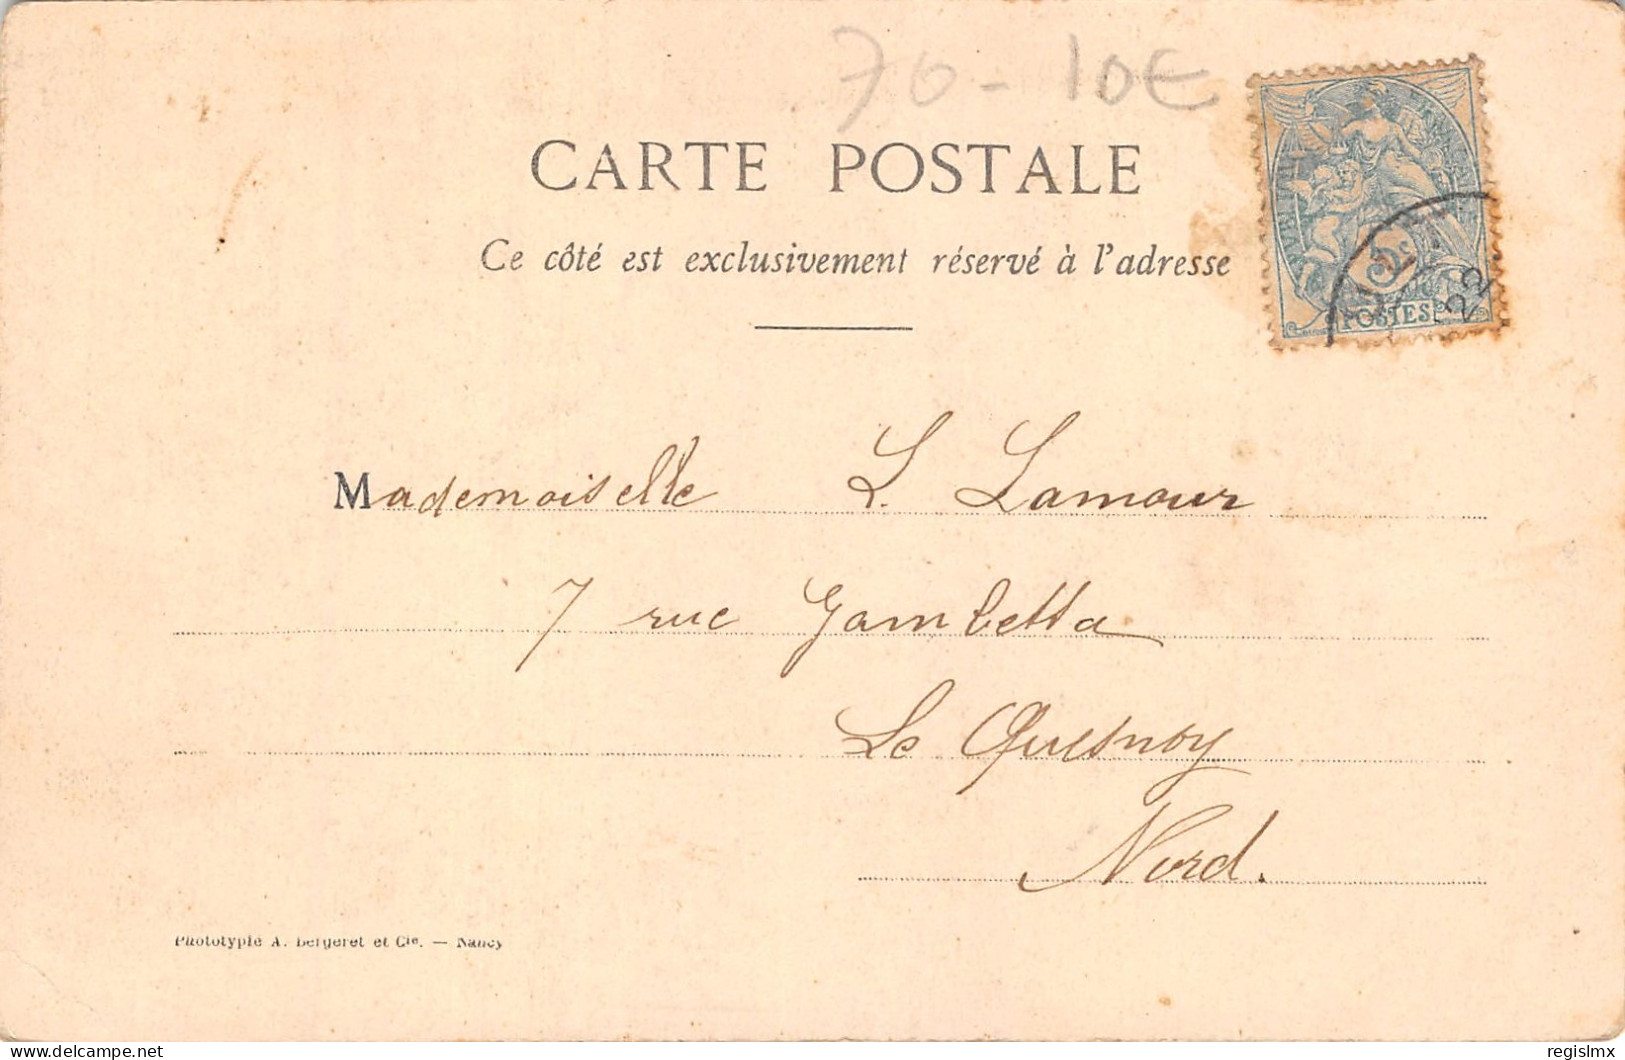 70 - 10€
CARTE POSTALE
Ce côté est exclusivement réservé à l'adresse
5c
POSTES
22
Mademoiselle L. Lamour
7 rue Gambetta
Le Quesnoy
Nord.
Phototypie A. Bergeret et Cie. — Nancy
delcampe.net
regislmx